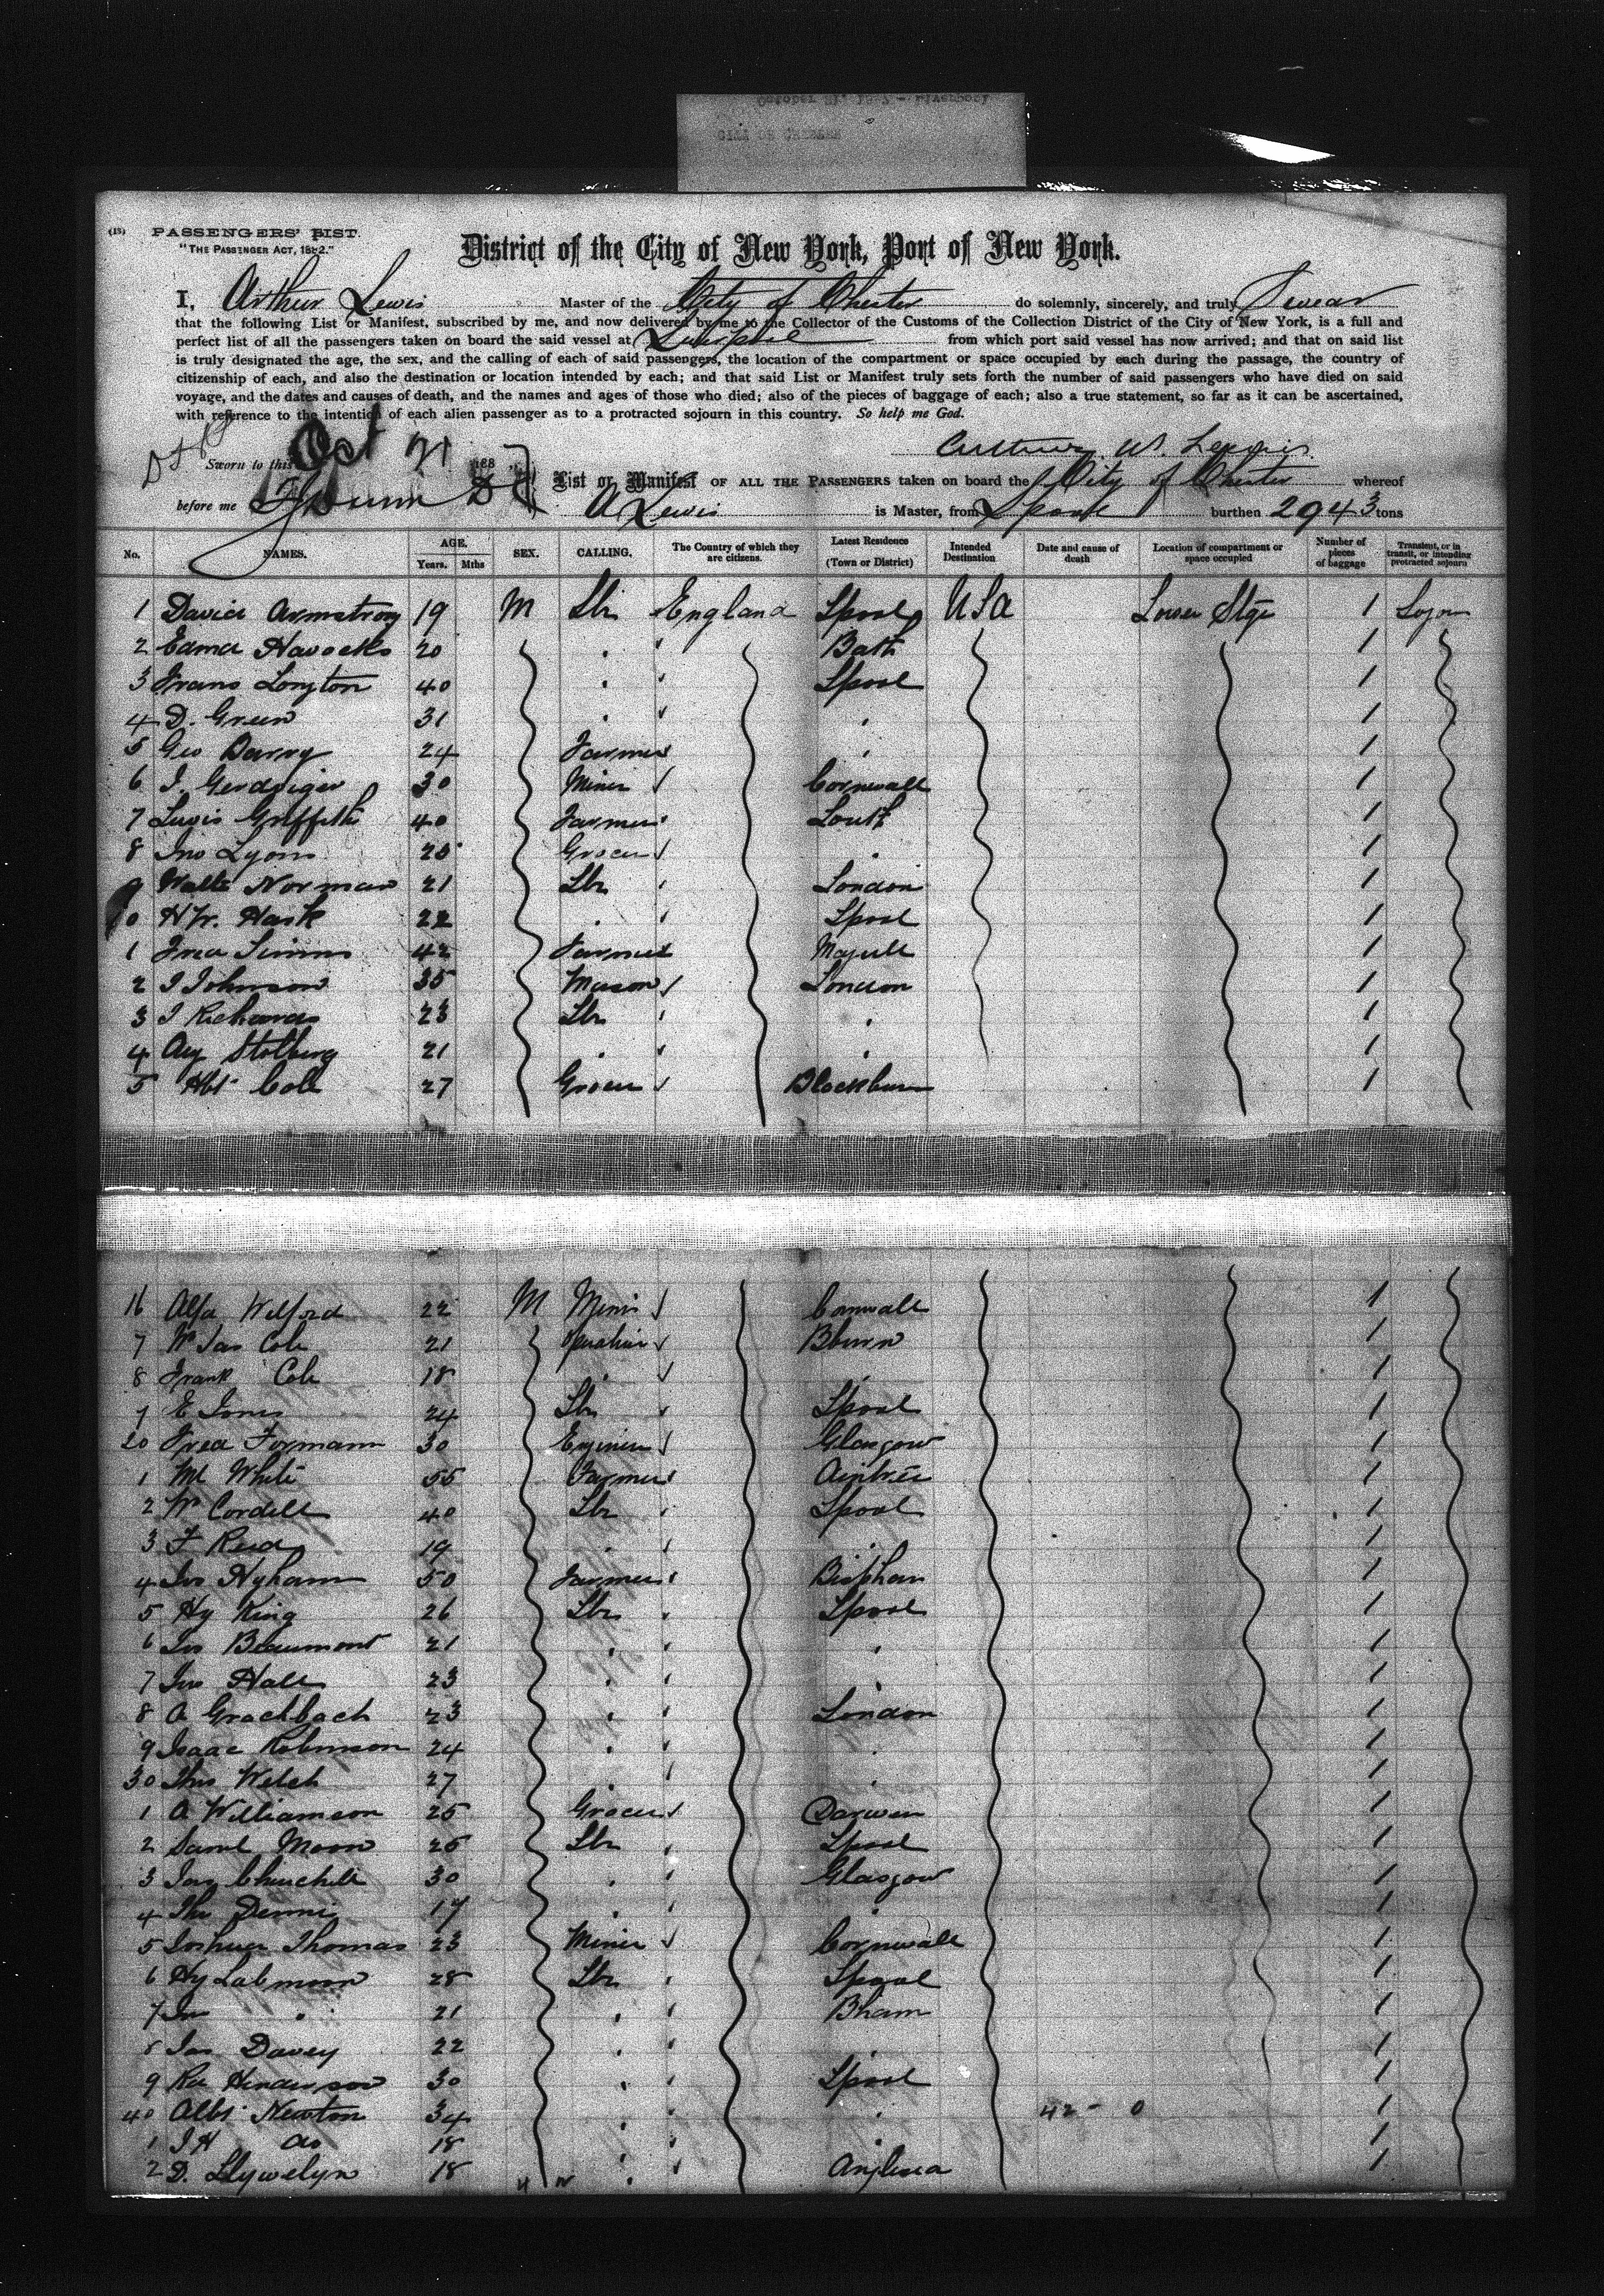 CITY OF CHESTER
(18) PASSENGERS' LIST.
"THE PASSENGER ACT, 1882."
District of the City of New York, Port of New York.
I, Arthur Lewis Master of the City of Chester do solemnly, sincerely, and truly Swear
that the following List or Manifest, subscribed by me, and now delivered by me to the Collector of the Customs of the Collection District of the City of New York, is a full and
perfect list of all the passengers taken on board the said vessel at Liverpool from which port said vessel has now arrived; and that on said list
is truly designated the age, the sex, and the calling of each of said passengers, the location of the compartment or space occupied by each during the passage, the country of
citizenship of each, and also the destination or location intended by each; and that said List or Manifest truly sets forth the number of said passengers who have died on said
voyage, and the dates and causes of death, and the names and ages of those who died; also of the pieces of baggage of each; also a true statement, so far as it can be ascertained,
with reference to the intention of each alien passenger as to a protracted sojourn in this country. So help me God.
Arthur W. Lewis
Sworn to this Oct 21 188
before me
List or Manifest OF ALL THE PASSENGERS taken on board the City of Chester whereof
A Lewis is Master, from Lpool burthen 2943 tons
No. NAMES. AGE. Years. Mths SEX. CALLING. The Country of which they are citizens. Latest Residence (Town or District) Intended Destination Date and cause of death Location of compartment or space occupied Number of pieces of baggage Transient, or in transit, or intending protracted sojourn
1 David Armstrong 19 M Lbr England Lpool USA Lower Stge 1 Sojn
2 Edmd Havocks 20 " " Bath 1
3 Frans Longton 40 " " Lpool 1
4 D. Green 31 " " " 1
5 Geo Darry 24 Farmer " 1
6 J. 30 Miner Cornwall 1
7 Lewis Griffiths 40 Farmer Louth 1
8 Jno Lyons 25 Grocer " 1
9 Waltr Norman 21 Lbr " London 1
10 Hy. Hask 22 " " Lpool 1
1 Fred Simms 42 Farmer 1
2 J Johnson 35 Mason London 1
3 J Richards 23 Lbr " " 1
4 Aug Stolberg 21 " " " 1
5 Hbt Cole 27 Grocer Blackburn 1
16 Alfd Welford 22 M Miner Cornwall 1
7 Wm Jas Cole 21 Bburn 1
8 Frank Cole 18 " " 1
9 E Jones 24 Lbr " Lpool 1
20 Fred Formann 30 Engineer Glasgow 1
1 Ml White 55 Farmer Aintree 1
2 Wm Cordell 40 Lbr " Lpool 1
3 F Reid 19 " " " 1
4 Jno Hyham 50 Farmer Bispham 1
5 Hy King 26 Lbr " Lpool 1
6 Jno Beaumont 21 " " " 1
7 Jno Hall 23 " " " 1
8 A Grachbach 23 " " London 1
9 Isaac Robinson 24 " " " 1
30 Thos Welch 27 " " " 1
1 A Williamson 25 Grocer Darwen 1
2 Saml Moon 26 Lbr " Lpool 1
3 Jas Churchill 30 " " Glasgow 1
4 Thos Dennis 17 " " " 1
5 Joshua Thomas 23 Miner Cornwall 1
6 Hy Labmoon 28 Lbr " Lpool 1
7 Jno " 21 " " Bham 1
8 Jas Davey 22 " " " 1
9 Rd Henderson 30 " " Lpool 1
40 Albt Newton 34 " " " 42 - 0 1
1 J H do 18 " " " 1
2 D. Llywelyn 18 " " Anglesea 1